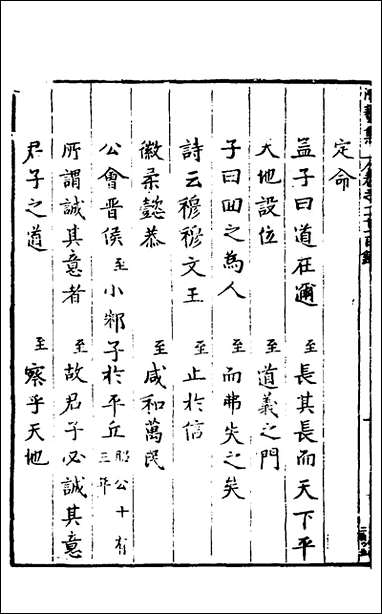 定命
孟子曰道在邇 至長其長而天下平
天地設位 至道義之門
子曰回之為人 至而弗失之矣
詩云穆穆文王 至止於信
徽柔懿恭 至咸和萬民
公會晉侯至小邾子於平丘 昭公十有三年
所謂誠其意者 至故君子必誠其意
君子之道 至察乎天地